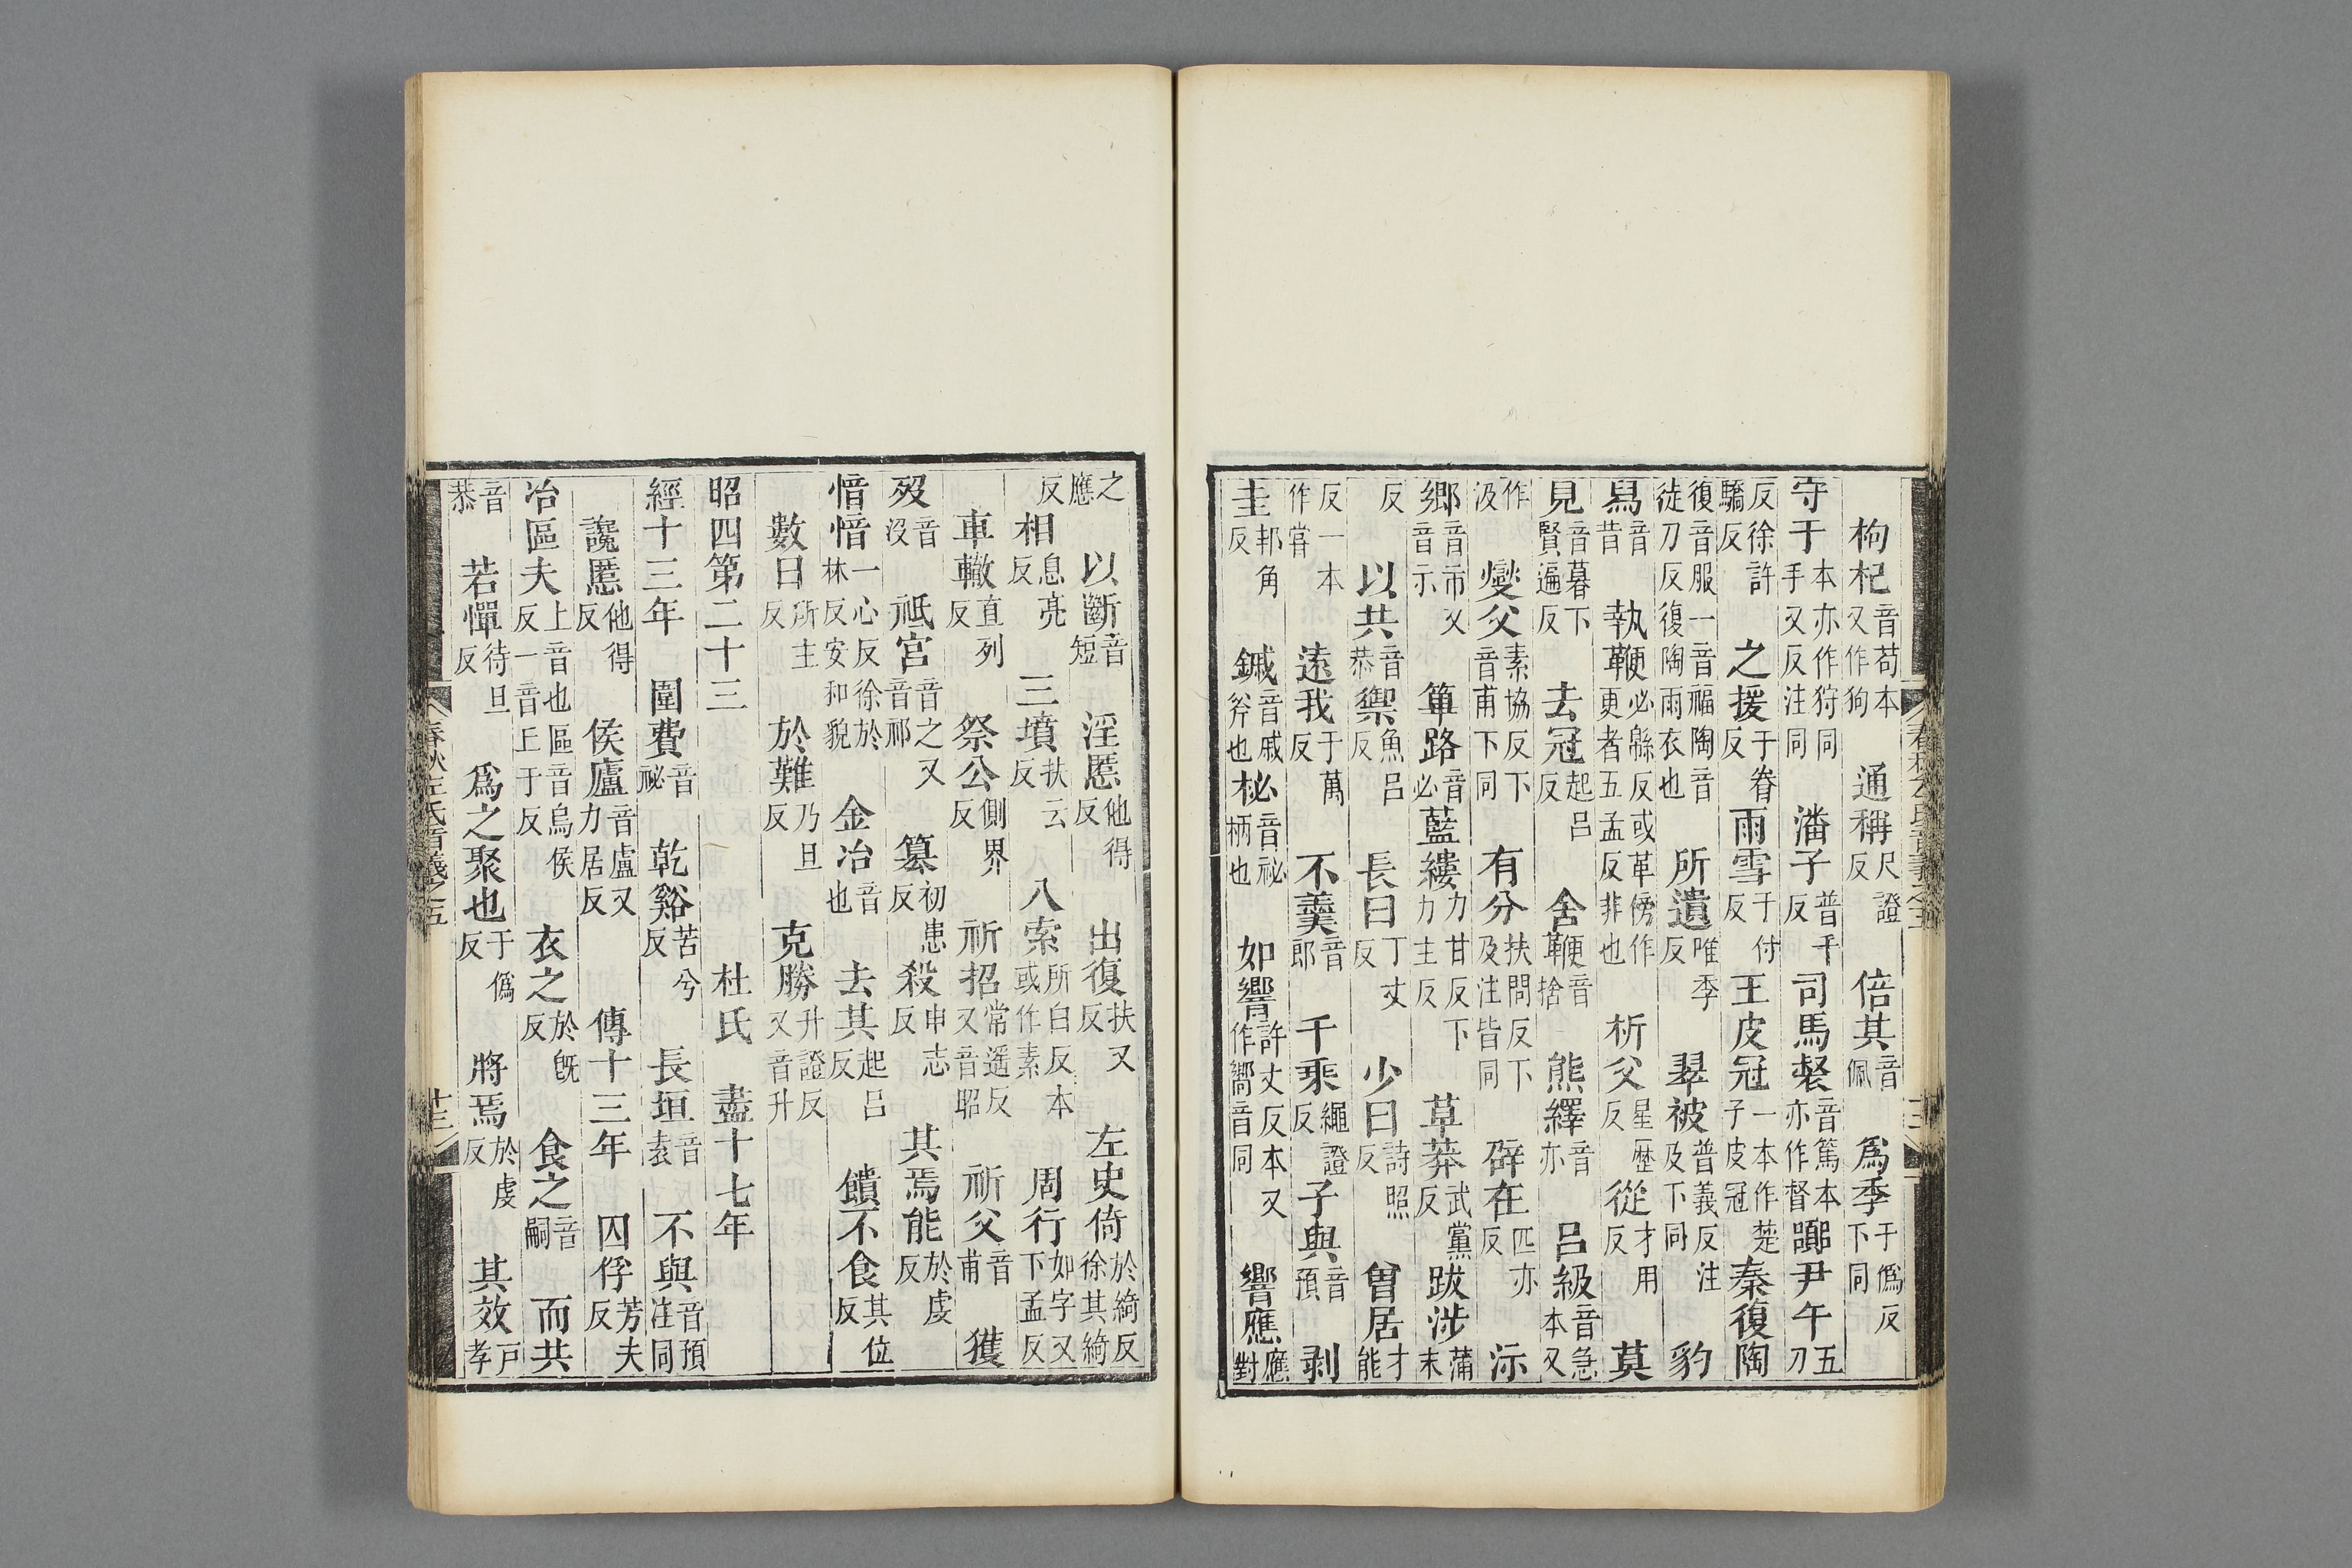 枸杞音苟本又作狗　通稱尺證反　倍其音佩　爲季于僞反下同
守于本亦作狩同手又反注同　潘子普干反　司馬督音篤本亦作督　嚻尹午五刀
反徐許驕反　之援于眷反　雨雪于付反　王皮冠一本作楚子皮冠　秦復陶
復音服一音福陶音徒刀反復陶雨衣也　所遺唯季反　翠被普義反注及下同　豹
舄音昔　執鞭必緜反或革傍作更者五孟反非也　析父星歷反　從才用反　莫
見音暮下賢遍反　去冠起呂反　舍鞭音捨　熊繹音亦　呂級音急本又
作汲　燮父素協反下音甫下同　有分扶問反下及注皆同　辟在匹亦反　沶
鄉音市又音示　篳路音必　藍縷力甘反下力主反　草莽武黨反　跋涉蒲末
反　以共音恭　禦魚呂反　長曰丁丈反　少曰詩照反　曾居才能
反一本作嘗　遠我于萬反　不羹音郎　千乘繩證反　子與音預　剥
圭邦角反　鏚音戚斧也　柲音祕柄也　如響許丈反本又作嚮音同　響應應對
之應反　以斷音短　淫慝他得反　出復扶又反　左史倚於綺反徐其綺
反　相息亮反　三墳扶云反　八索所白反本或作素　周行如字又下孟反
車轍直列反　祭公側界反　祈招常遥反又音昭　祈父音甫　獲
歿音沒　祗宮音之又音祁　簒初患反　殺申志反　其焉能於虔反
愔愔一心反徐於林反安和貌　金冶音也　去其起呂反　饋不食其位反
數日所主反　於難乃旦反　克勝升證反又音升
昭四第二十三　杜氏　盡十七年
經十三年　圍費音祕　乾谿苦兮反　長垣音袁　不與音預注同
讒慝他得反　侯廬音盧又力居反　傳十三年　囚俘芳夫反
冶區夫上音也區音烏侯反一音丘于反　衣之於旣反　食之音嗣　而共
音恭　若憚待旦反　爲之聚也于僞反　將焉於虔反　其效戶孝
春秋左氏音義之五